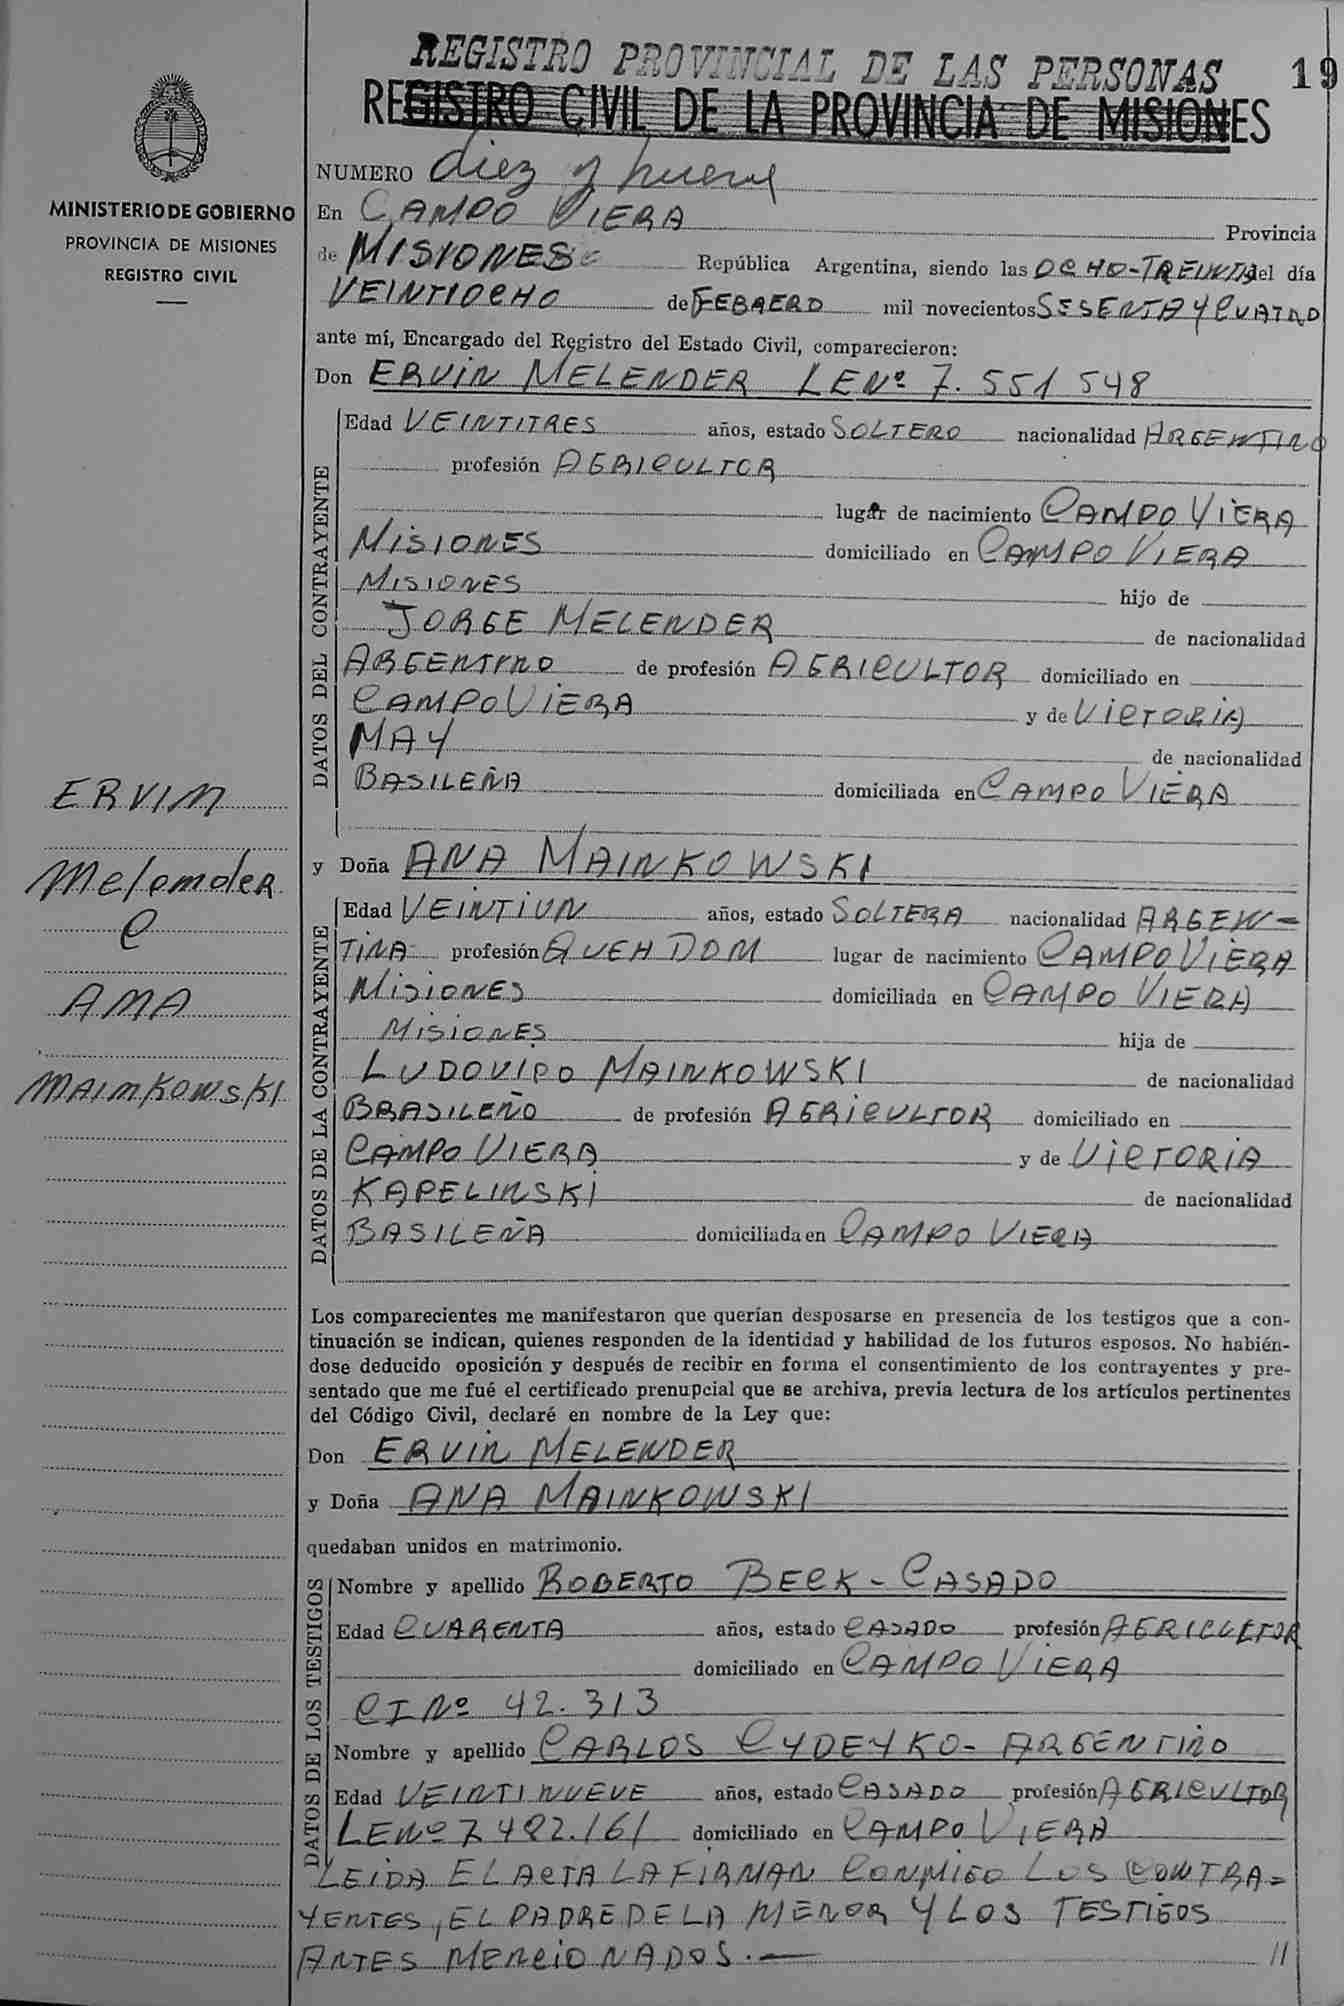 REGISTRO PROVINCIAL DE LAS PERSONAS 19
REGISTRO CIVIL DE LA PROVINCIA DE MISIONES
MINISTERIO DE GOBIERNO
PROVINCIA DE MISIONES
REGISTRO CIVIL
NUMERO diez y nueve
En CAMPO VIERA Provincia
de MISIONES República Argentina, siendo las OCHO-TREINTA del día
VEINTIOCHO de FEBRERO mil novecientos SESENTA Y CUATRO
ante mí, Encargado del Registro del Estado Civil, comparecieron:
Don ERVIN MELENDER LE Nº 7.551548
DATOS DEL CONTRAYENTE
Edad VEINTITRES años, estado SOLTERO nacionalidad ARGENTINO
profesión AGRICULTOR
lugar de nacimiento CAMPO VIERA
MISIONES domiciliado en CAMPO VIERA
MISIONES hijo de
JORGE MELENDER de nacionalidad
ARGENTINO de profesión AGRICULTOR domiciliado en
CAMPO VIERA y de VICTORIA
MAY de nacionalidad
BASILEÑA domiciliada en CAMPO VIERA
y Doña ANA MAINKOWSKI
DATOS DE LA CONTRAYENTE
Edad VEINTIUN años, estado SOLTERA nacionalidad ARGEN-
TINA profesión QUEH DOM lugar de nacimiento CAMPO VIERA
MISIONES domiciliada en CAMPO VIERA
MISIONES hija de
LUDOVICO MAINKOWSKI de nacionalidad
BRASILEÑO de profesión AGRICULTOR domiciliado en
CAMPO VIERA y de VICTORIA
KAPELINSKI de nacionalidad
BASILEÑA domiciliada en CAMPO VIERA
Los comparecientes me manifestaron que querían desposarse en presencia de los testigos que a con-
tinuación se indican, quienes responden de la identidad y habilidad de los futuros esposos. No habién-
dose deducido oposición y después de recibir en forma el consentimiento de los contrayentes y pre-
sentado que me fué el certificado prenupcial que se archiva, previa lectura de los artículos pertinentes
del Código Civil, declaré en nombre de la Ley que:
Don ERVIN MELENDER
y Doña ANA MAINKOWSKI
quedaban unidos en matrimonio.
DATOS DE LOS TESTIGOS
Nombre y apellido ROBERTO BECK - CASADO
Edad CUARENTA años, estado CASADO profesión AGRICULTOR
domiciliado en CAMPO VIERA
CI Nº 42.313
Nombre y apellido CARLOS CYDEYKO - ARGENTINO
Edad VEINTINUEVE años, estado CASADO profesión AGRICULTOR
LE Nº 7482.161 domiciliado en CAMPO VIERA
LEIDA EL ACTA LA FIRMAN CONMIGO LOS CONTRA=
YENTES, EL PADRE DE LA MENOR Y LOS TESTIGOS
ANTES MENCIONADOS.— //
ERVIM
MelemdeR
e
AMA
MAIMKOWSKI